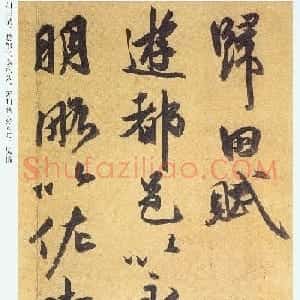 歸田賦
遊都邑以永
明略以佐時
Shufaziliao.com